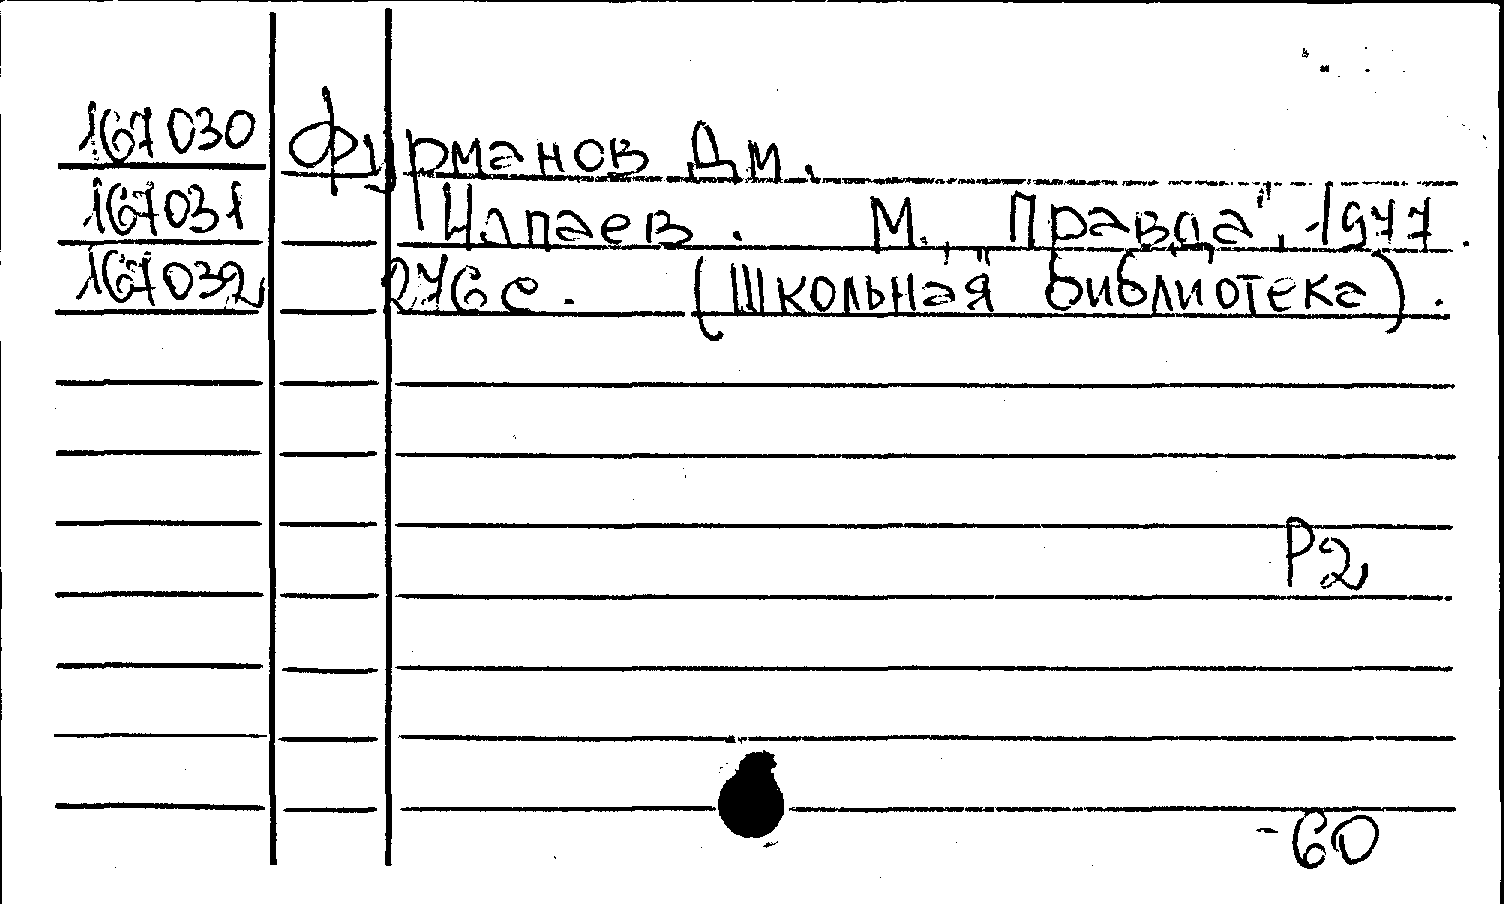 167030 Фурманов Дм.
167031 Чапаев. М., "Правда", 1977.
167032 276 с. (Школьная библиотека).
Р2
-60